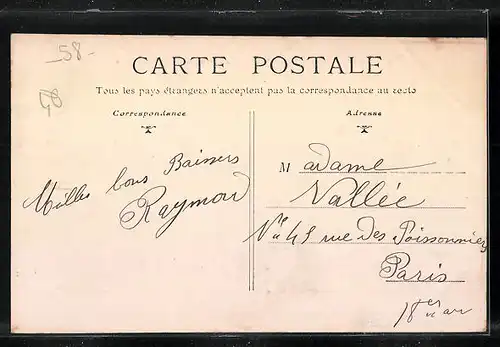 58-
58
CARTE POSTALE
Tous les pays étrangers n'acceptent pas la correspondance au recto
Correspondance
Adresse
Mille bons Baisers
Raymond
Madame
Vallée
rue des Poissonniers
Paris
18